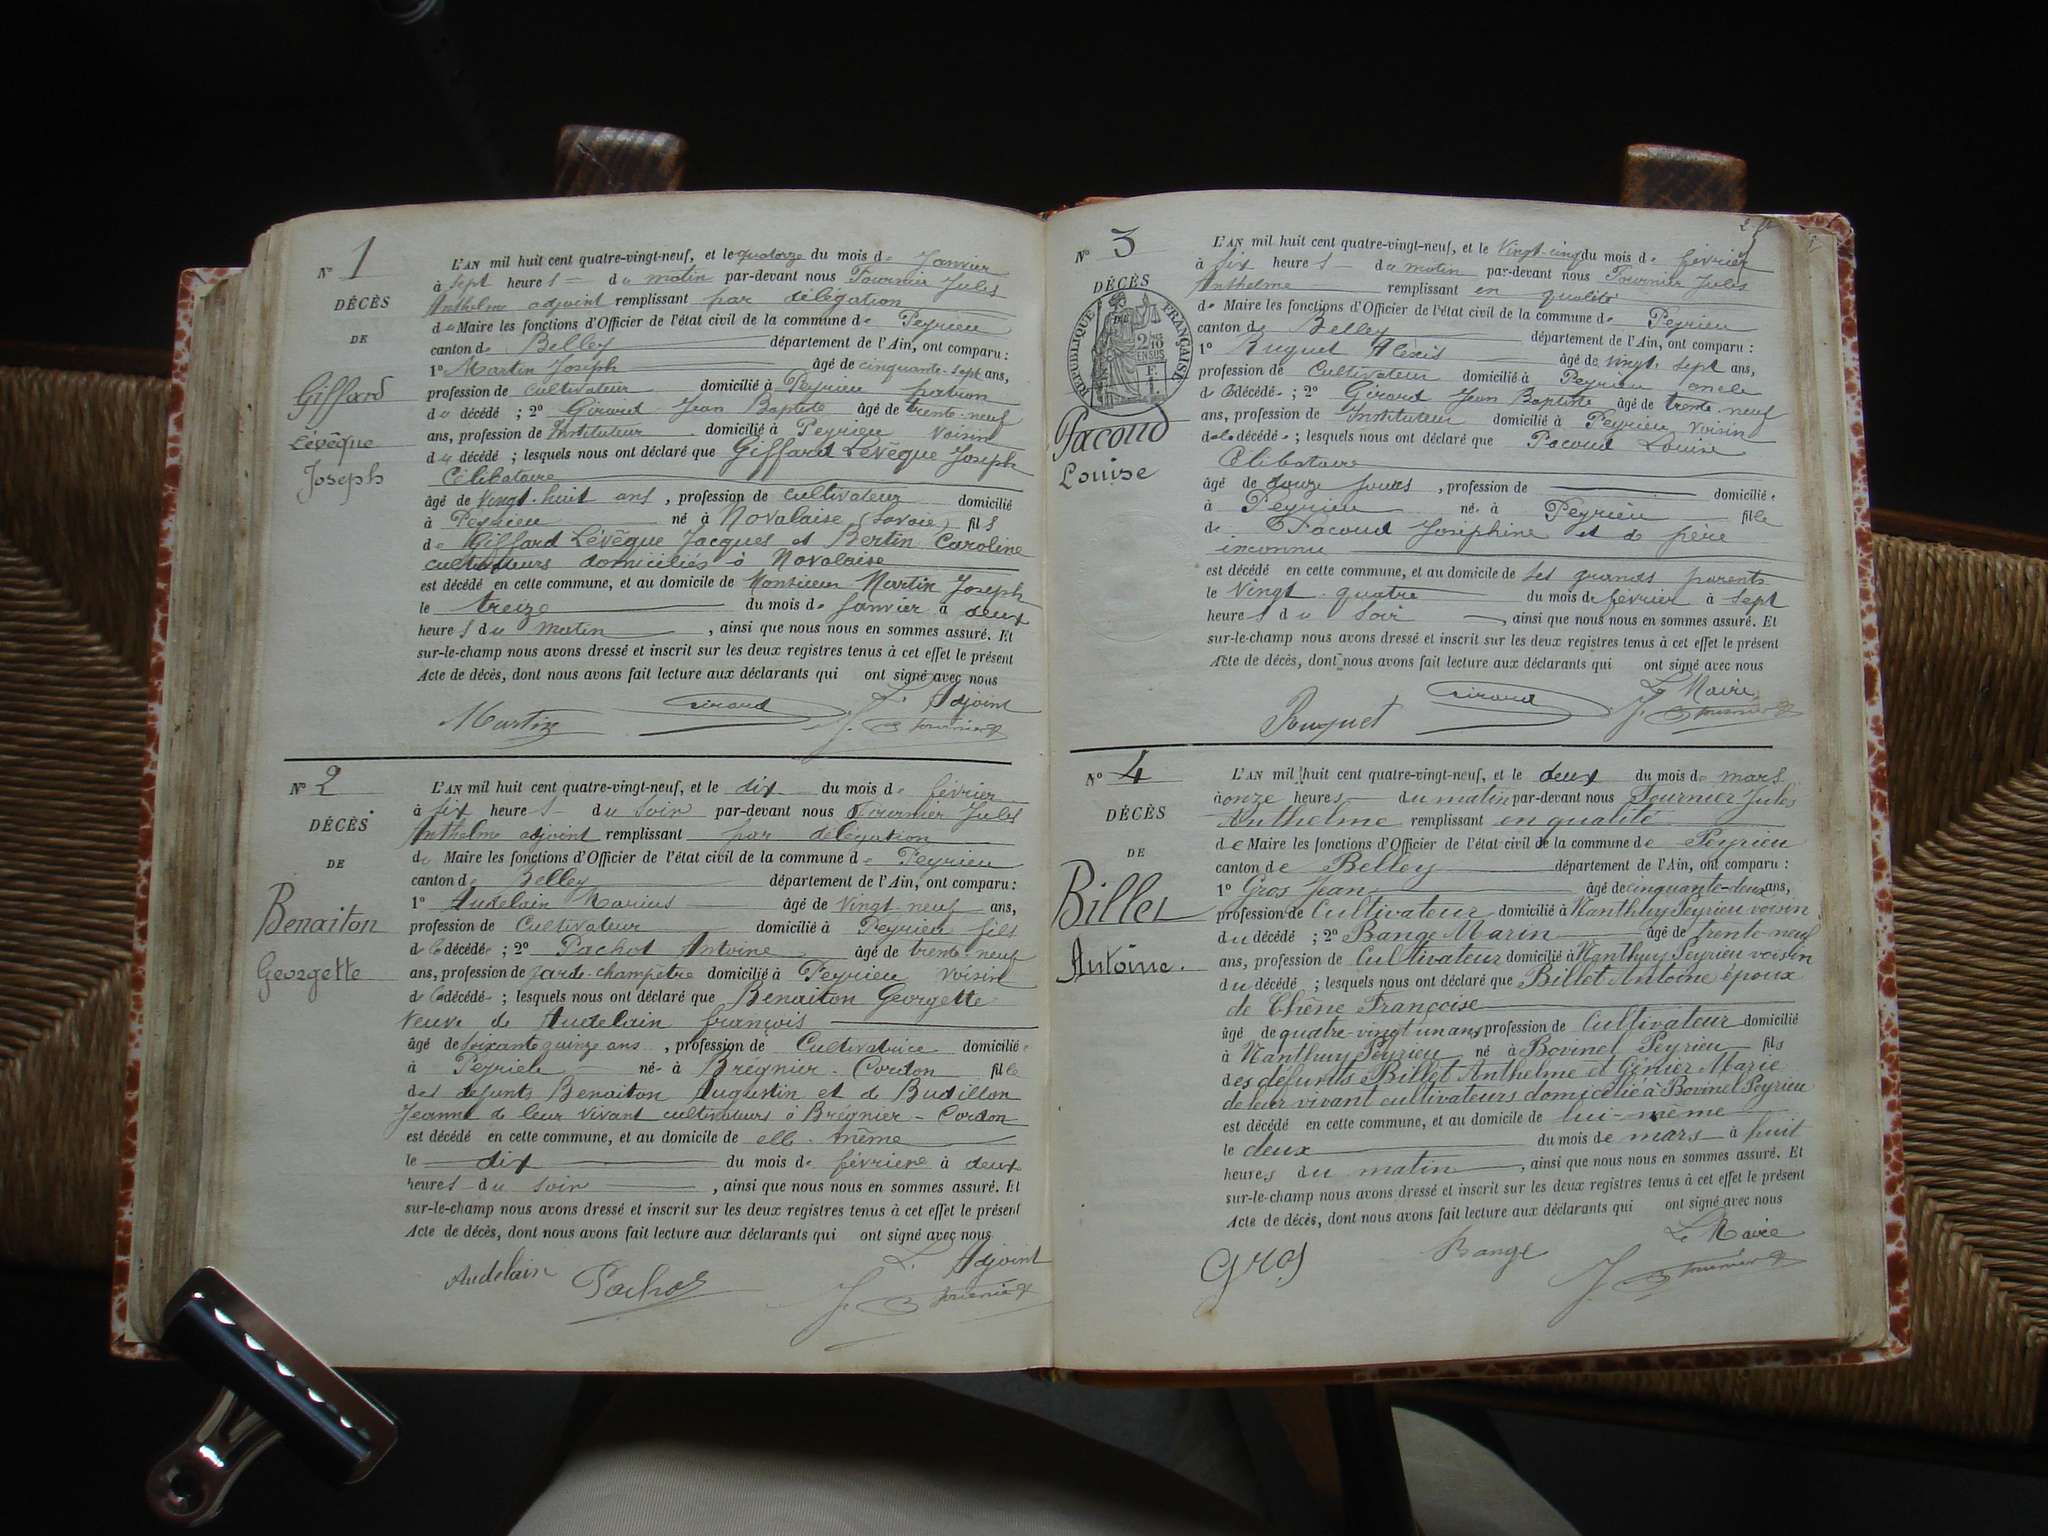 N° 1
DÉCÈS
DE
Giffard
Lévêque
Joseph
L'AN mil huit cent quatre-vingt-neuf, et le quatorze du mois de Janvier
à sept heures du matin par-devant nous Fournier Jules
Anthelme adjoint remplissant par délégation
du Maire les fonctions d'Officier de l'état civil de la commune de Peyrieu
canton de Belley département de l'Ain, ont comparu :
1° Martin Joseph âgé de cinquante-sept ans,
profession de cultivateur domicilié à Peyrieu patron
du décédé ; 2° Girard Jean Baptiste âgé de trente-neuf
ans, profession de Instituteur domicilié à Peyrieu voisin
du décédé ; lesquels nous ont déclaré que Giffard Lévêque Joseph
Célibataire
âgé de vingt-huit ans, profession de cultivateur domicilié
à Peyrieu né à Novalaise (Savoie) fils
de Giffard Lévêque Jacques et Bertin Caroline
cultivateurs domiciliés à Novalaise
est décédé en cette commune, et au domicile de Monsieur Martin Joseph
le treize du mois de Janvier à deux
heures du matin, ainsi que nous nous en sommes assuré. Et
sur-le-champ nous avons dressé et inscrit sur les deux registres tenus à cet effet le présent
Acte de décès, dont nous avons fait lecture aux déclarants qui ont signé avec nous
L'Adjoint
Martin Girard J. Fournier
N° 2
DÉCÈS
DE
Benaiton
Georgette
L'AN mil huit cent quatre-vingt-neuf, et le dix du mois de février
à six heures du soir par-devant nous Fournier Jules
Anthelme adjoint remplissant par délégation
du Maire les fonctions d'Officier de l'état civil de la commune de Peyrieu
canton de Belley département de l'Ain, ont comparu :
1° Audelain Marius âgé de vingt-neuf ans,
profession de Cultivateur domicilié à Peyrieu fils
de la décédée ; 2° Pachot Antoine âgé de trente-neuf
ans, profession de garde-champêtre domicilié à Peyrieu voisin
de la décédée ; lesquels nous ont déclaré que Benaiton Georgette
Veuve de Audelain françois
âgé de soixante quinze ans, profession de Cultivatrice domiciliée
à Peyrieu née à Brégnier-Cordon fille
des défunts Benaiton Augustin et de Budillon
Jeanne de leur vivant cultivateurs à Brégnier-Cordon
est décédé en cette commune, et au domicile de elle-même
le dix du mois de février à deux
heures du soir, ainsi que nous nous en sommes assuré. Et
sur-le-champ nous avons dressé et inscrit sur les deux registres tenus à cet effet le présent
Acte de décès, dont nous avons fait lecture aux déclarants qui ont signé avec nous
L'Adjoint
Audelain Pachot J. Fournier
N° 3
DÉCÈS
DE
RÉPUBLIQUE FRANÇAISE
Pacoud
Louise
L'AN mil huit cent quatre-vingt-neuf, et le vingt-cinq du mois de février
à six heures du matin par-devant nous Fournier Jules
Anthelme remplissant en qualité
de Maire les fonctions d'Officier de l'état civil de la commune de Peyrieu
canton de Belley département de l'Ain, ont comparu :
1° Ruguet Alexis âgé de vingt-sept ans,
profession de Cultivateur domicilié à Peyrieu oncle
de la décédée ; 2° Girard Jean Baptiste âgé de trente-neuf
ans, profession de Instituteur domicilié à Peyrieu voisin
de la décédée ; lesquels nous ont déclaré que Pacoud Louise
Célibataire
âgé de douze jours, profession de domiciliée
à Peyrieu née à Peyrieu fille
de Pacoud Joséphine et de père
inconnu
est décédé en cette commune, et au domicile de ses grands parents
le vingt-quatre du mois de février à sept
heures du soir, ainsi que nous nous en sommes assuré. Et
sur-le-champ nous avons dressé et inscrit sur les deux registres tenus à cet effet le présent
Acte de décès, dont nous avons fait lecture aux déclarants qui ont signé avec nous
Le Maire
Girard J. Fournier
N° 4
DÉCÈS
DE
Billet
Antoine.
L'AN mil huit cent quatre-vingt-neuf, et le deux du mois de mars
à onze heures du matin par-devant nous Fournier Jules
Anthelme remplissant en qualité
de Maire les fonctions d'Officier de l'état civil de la commune de Peyrieu
canton de Belley département de l'Ain, ont comparu :
1° Gros Jean âgé de cinquante-deux ans,
profession de Cultivateur domicilié à Nanthuy Peyrieu voisin
du décédé ; 2° Bange Marin âgé de trente-neuf
ans, profession de Cultivateur domicilié à Nanthuy Peyrieu voisin
du décédé ; lesquels nous ont déclaré que Billet Antoine époux
de Chêne Françoise
âgé de quatre-vingt un ans, profession de Cultivateur domicilié
à Nanthuy Peyrieu né à Bovinel Peyrieu fils
des défunts Billet Anthelme et Génier Marie
de leur vivant cultivateurs domicilié à Bovinel Peyrieu
est décédé en cette commune, et au domicile de lui-même
le deux du mois de mars à huit
heures du matin, ainsi que nous nous en sommes assuré. Et
sur-le-champ nous avons dressé et inscrit sur les deux registres tenus à cet effet le présent
Acte de décès, dont nous avons fait lecture aux déclarants qui ont signé avec nous
Le Maire
Gros Bange J. Fournier